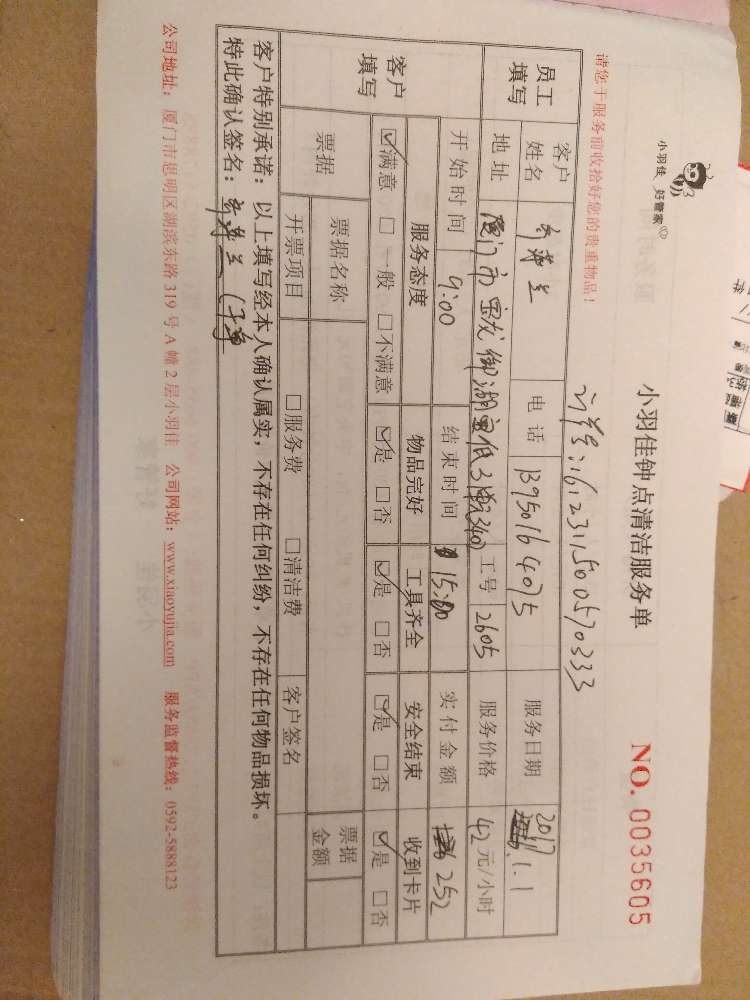 小羽佳 好管家
小羽佳钟点清洁服务单
NO. 0035605
请您于服务前收拾好您的贵重物品！
订单号:161231150057 0333
员工填写
客户姓名
电话 13950164075
服务日期 2017.1.1
地址 厦门市宝龙御湖官邸
工号 2605
服务价格 42元/小时
客户填写
开始时间 9:00
结束时间 15:00
实付金额 252
服务态度 物品完好 工具齐全 安全结束 收到卡片
☑满意 □一般 □不满意 ☑是 □否 ☑是 □否 ☑是 □否 ☑是 □否
票据 票据名称 票据金额
开票项目 □服务费 □清洁费 客户签名
客户特别承诺：以上填写经本人确认属实，不存在任何纠纷，不存在任何物品损坏。
特此确认签名：
公司地址：厦门市思明区湖滨东路319号A幢2层小羽佳 公司网站：www.xiaoyujia.com 服务监督热线：0592-5888123